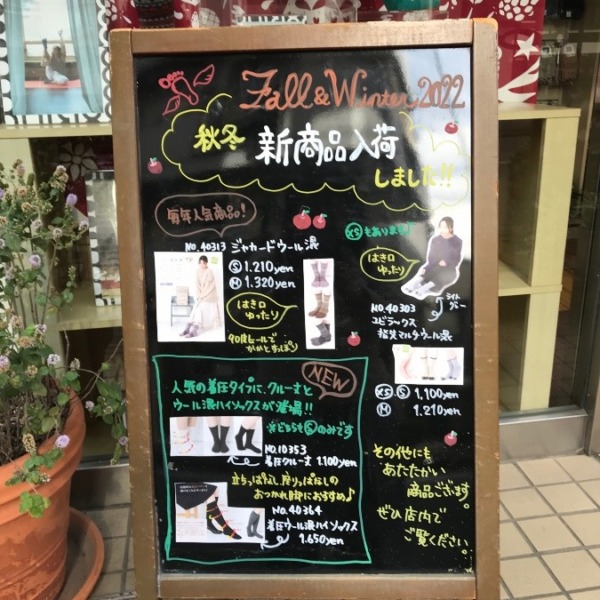 Fall & Winter 2022
秋冬
新商品入荷
しました!!
毎年人気商品!
NO.40313 ジャカードウール混
Ⓢ 1.210yen
Ⓜ 1.320yen
はき口
ゆったり
90度ヒールで
かかとすっぽり
XSもあります♪
はき口
ゆったり
ライト
グレー
NO.40303
ユビラックス
指先マルチウール混
XS Ⓢ 1,100yen
Ⓜ 1.210yen
NEW
人気の着圧タイプに、クルー丈と
ウール混ハイソックスが登場!!
※どちらもⓈのみです
NO.10353
着圧クルー丈 1.100yen
立ちっぱなし 座りっぱなしの
おつかれ脚におすすめ♪
NO.40364
着圧ウール混ハイソックス
1.650yen
その他にも
あたたかい
商品ございます。
ぜひ店内で
ご覧ください。